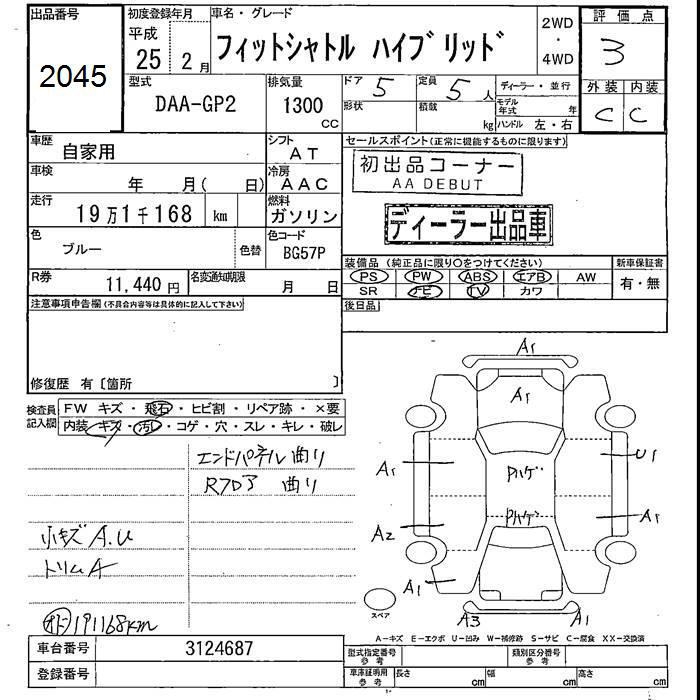 出品番号
2045
初度登録年月
平成
25 2月
車名・グレード
フィットシャトル ハイブリッド
2WD
・
4WD
評価点
3
型式
DAA-GP2
排気量
1300
cc
ドア 5
形状
定員 5人
積載 kg
ディーラー・並行
モデル年式 年
ハンドル 左・右
外装 内装
C C
車歴
自家用
シフト
AT
車検
年 月( 日)
冷房
AAC
走行
19万1千168 km
燃料
ガソリン
色
ブルー
色替
色コード
BG57P
R券
11,440円
名変通知期限
月 日
セールスポイント(正常に機能するものに限ります)
初出品コーナー
AA DEBUT
ディーラー出品車
装備品(純正品に限り○をつけてください)
PS PW ABS エアB AW
SR ナビ TV カワ
新車保証書
有・無
後日品
注意事項申告欄(不具合内容等は具体的に記入して下さい)
修復歴 有〔箇所 〕
検査員
記入欄
FW キズ・飛石・ヒビ割・リペア跡・×要
内装 キズ・汚レ・コゲ・穴・スレ・キレ・破レ
エンドパネル曲り
Rフロア 曲り
小キズA.U
トリムA
オド 191168km
A1
A1
A1
Pハゲ
U1
Pハゲ
A2
A1
A1
A3
A1
スペア
A-キズ E-エクボ U-凹み W-補修跡 S-サビ C-腐食 XX-交換済
車台番号
3124687
登録番号
型式指定番号
参考
類別区分番号
参考
車庫証明用
参考
長さ cm
幅 cm
高さ cm